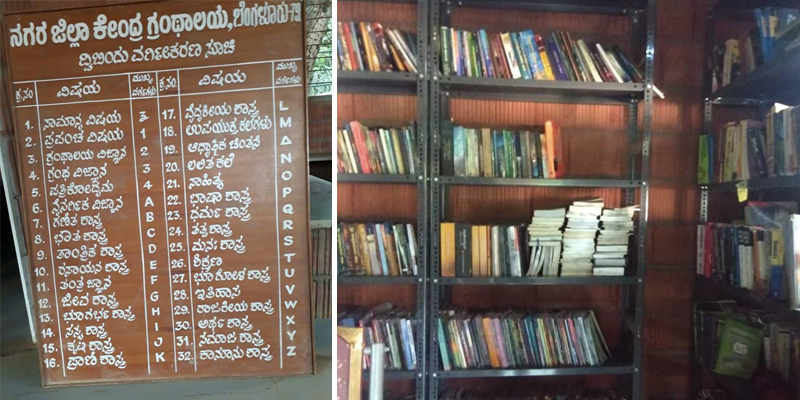 ನಗರ ಜಿಲ್ಲಾ ಕೇಂದ್ರ ಗ್ರಂಥಾಲಯ, ಬೆಂಗಳೂರು-79
ದ್ವಿಬಿಂದು ವರ್ಗೀಕರಣ ಸೂಚಿ
ಕ್ರ.ಸಂ ವಿಷಯ ಮುಖ್ಯ ವರ್ಗಗಳು ಕ್ರ.ಸಂ. ವಿಷಯ ಮುಖ್ಯ ವರ್ಗಗಳು
1. ಸಾಮಾನ್ಯ ವಿಷಯ
2. ಪ್ರಪಂಚ ವಿಷಯ 1
3. ಗ್ರಂಥಾಲಯ ವಿಜ್ಞಾನ 2
4. ಗ್ರಂಥ ವಿಜ್ಞಾನ 3
5. ಪತ್ರಿಕೋದ್ಯಮ 4
6. ನೈಸರ್ಗಿಕ ವಿಜ್ಞಾನ A
7. ಗಣಿತ ಶಾಸ್ತ್ರ B
8. ಭೌತ ಶಾಸ್ತ್ರ C
9. ತಾಂತ್ರಿಕ ಶಾಸ್ತ್ರ D
10. ರಸಾಯನ ಶಾಸ್ತ್ರ E
11. ತಂತ್ರ ಜ್ಞಾನ F
12. ಜೀವ ಶಾಸ್ತ್ರ G
13. ಭೂಗರ್ಭ ಶಾಸ್ತ್ರ H
14. ಸಸ್ಯ ಶಾಸ್ತ್ರ I
15. ಕೃಷಿ ಶಾಸ್ತ್ರ J
16. ಪ್ರಾಣಿ ಶಾಸ್ತ್ರ K
17. ವೈದ್ಯಕೀಯ ಶಾಸ್ತ್ರ L
18. ಉಪಯುಕ್ತ ಕಲೆಗಳು M
19. ಆಧ್ಯಾತ್ಮಿಕ ಚಿಂತನ Δ
20. ಲಲಿತ ಕಲೆ N
21. ಸಾಹಿತ್ಯ O
22. ಭಾಷಾ ಶಾಸ್ತ್ರ P
23. ಧರ್ಮ ಶಾಸ್ತ್ರ Q
24. ತತ್ವ ಶಾಸ್ತ್ರ R
25. ಮನಃ ಶಾಸ್ತ್ರ S
26. ಶಿಕ್ಷಣ T
27. ಭೂಗೋಳ ಶಾಸ್ತ್ರ U
28. ಇತಿಹಾಸ V
29. ರಾಜಕೀಯ ಶಾಸ್ತ್ರ W
30. ಅರ್ಥ ಶಾಸ್ತ್ರ X
31. ಸಮಾಜ ಶಾಸ್ತ್ರ Y
32. ಕಾನೂನು ಶಾಸ್ತ್ರ Z